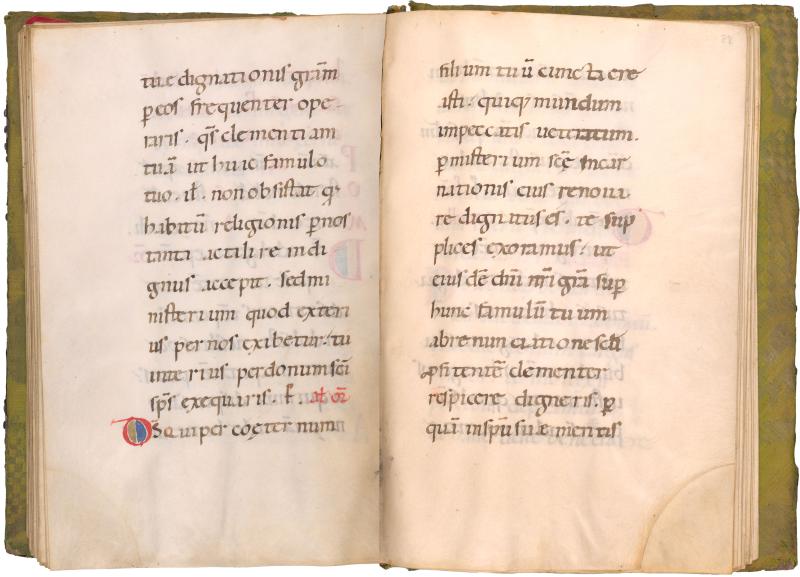 tuę dignationis gr̄am
ꝑ eos frequenter ope-
raris. qs̄ clementiam
tuā ut huic famulo
tuo. il̄. non obsistat qđ
habitū religionis ꝑ nos
tanta ac tali re indi
gnus accepit. sed mi
nisterium quod exteri
us per nos exibetur. tu
interius per donum sc̄i
sp̄s exequaris. ꝑ. al̄ or̄
DS Qui per coęternum
filium tuū cuncta cre
asti. quiq; mundum
in peccatis ueteratum.
ꝑ misterium scę̄ incar
nationis eius renoua
re dignatus es. te sup
plices exoramus. ut
eiusdē dn̄i nr̄i gr̄a sup̄
hunc famulū tuum
abrenunciatione sc̄li
ꝓfitentē clementer
respicere digneris. ꝑ
quā in sp̄u suę mentis